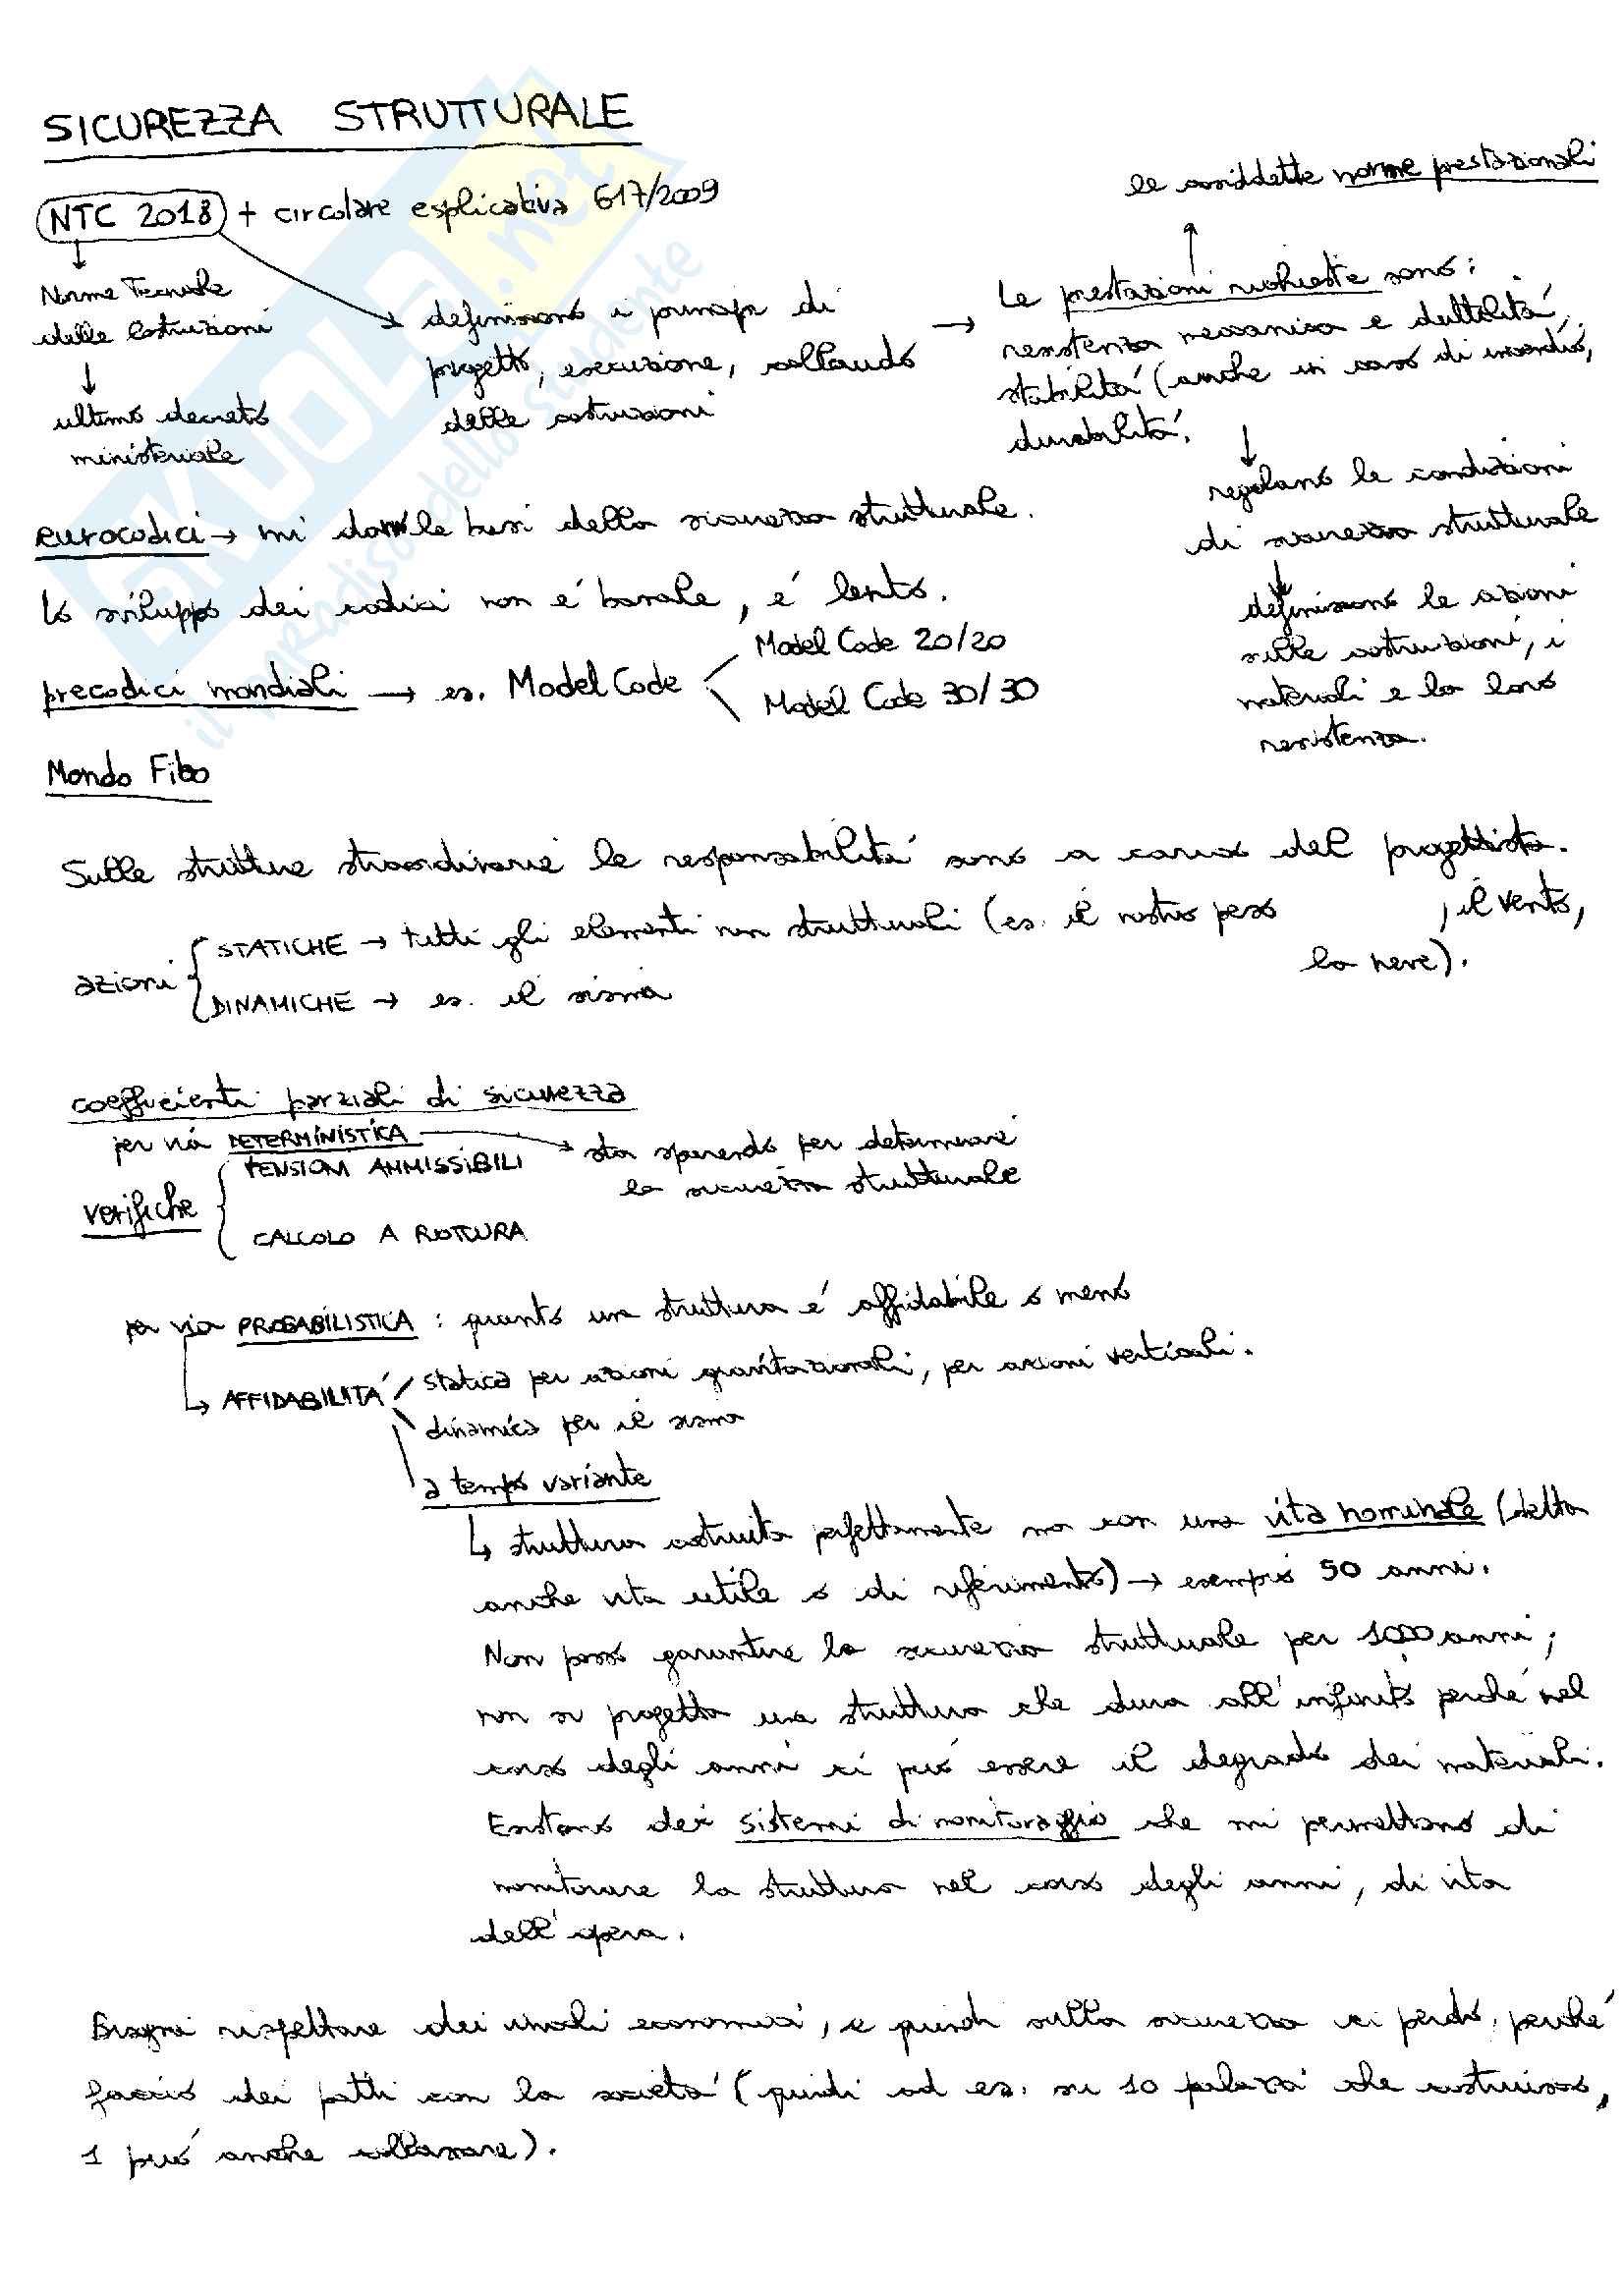 SICUREZZA STRUTTURALE
NTC 2018 + circolare esplicativa 617/2009
Norme Tecniche
delle Costruzioni
ultimo decreto
ministeriale
definiscono i principi di
progetto, esecuzione, collaudo
delle costruzioni
le cosiddette norme prestazionali
Le prestazioni richieste sono:
resistenza meccanica e duttilità,
stabilità (anche in caso di incendio),
durabilità.
regolano le condizioni
di sicurezza strutturale
definiscono le azioni
sulle costruzioni, i
materiali e la loro
resistenza.
eurocodici → mi danno le basi della sicurezza strutturale.
Lo sviluppo dei codici non è banale, è lento.
precodici mondiali → es. Model Code
Model Code 20/20
Model Code 30/30
Mondo Fibo
Sulle strutture straordinarie le responsabilità sono a carico del progettista.
azioni
STATICHE → tutti gli elementi non strutturali (es. il nostro peso, il vento,
la neve).
DINAMICHE → es. il sisma
coefficienti parziali di sicurezza
per via DETERMINISTICA
sta sparendo per determinare
la sicurezza strutturale
verifiche
TENSIONI AMMISSIBILI
CALCOLO A ROTTURA
per via PROBABILISTICA : quanto una struttura è affidabile o meno
↳ AFFIDABILITÀ
statica per azioni gravitazionali, per azioni verticali.
dinamica per il sisma
a tempo variante
↳ struttura costruita perfettamente ma con una vita nominale (detta
anche vita utile o di riferimento) → esempio 50 anni.
Non posso garantire la sicurezza strutturale per 1000 anni;
non si progetta una struttura che dura all'infinito perché nel
corso degli anni ci può essere il degrado dei materiali.
Esistono dei sistemi di monitoraggio che mi permettono di
monitorare la struttura nel corso degli anni, di vita
dell'opera.
Bisogna rispettare dei vincoli economici, e quindi sulla sicurezza ci perdo, perché
faccio dei patti con la società (quindi ad es. su 10 palazzi che costruisco,
1 può anche collassare).
SKUOLA.net
il paradiso dello studente